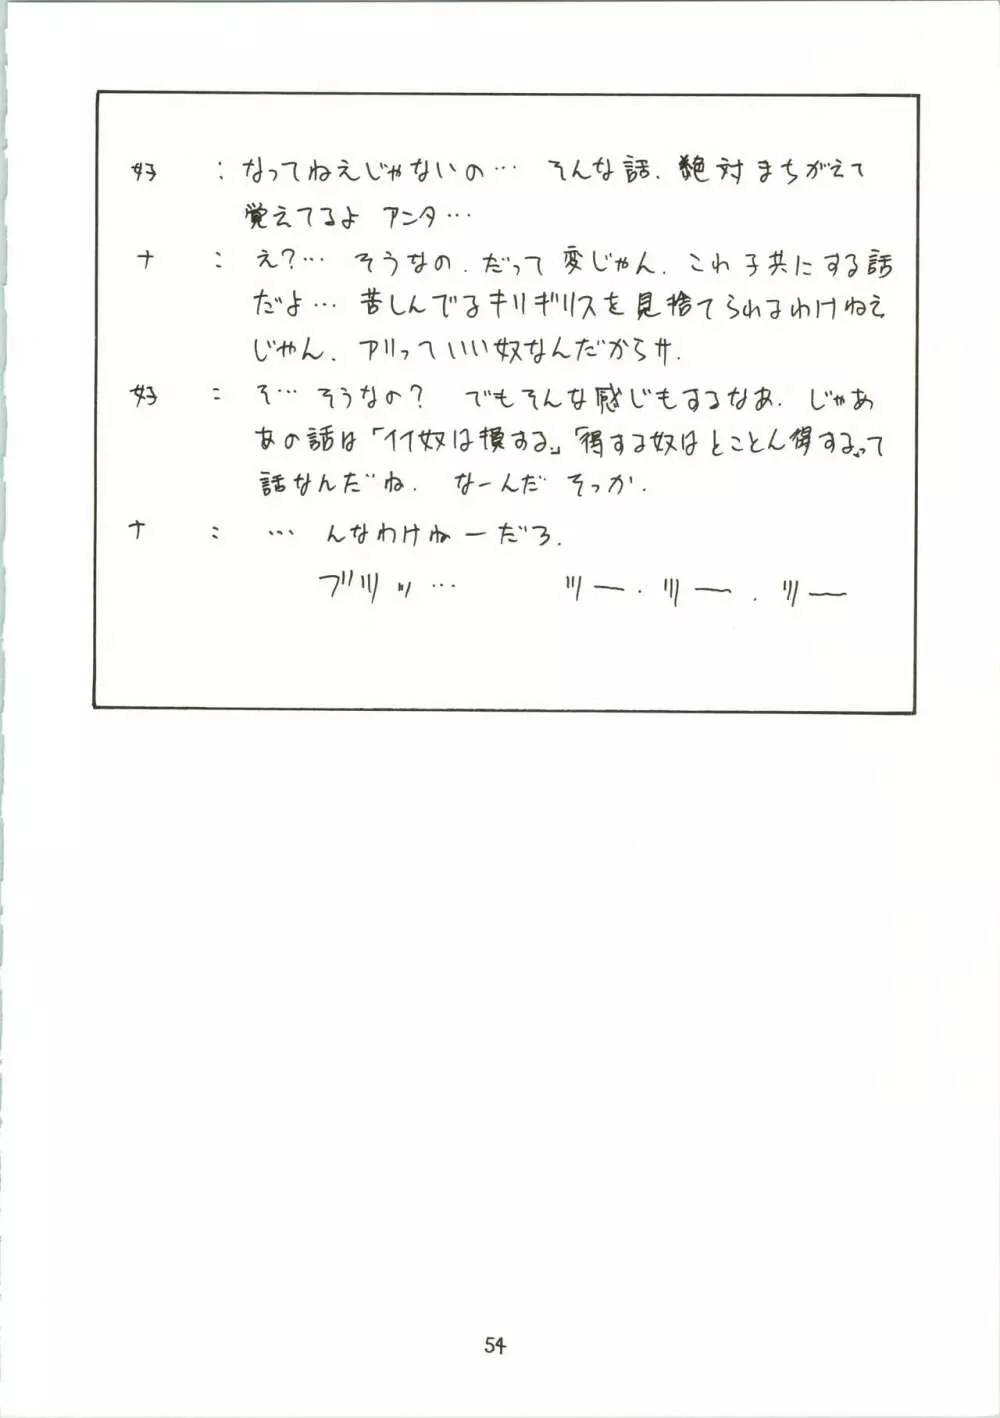 好 : なってねえじゃないの… そんな話、絶対まちがえて
覚えてるよ アンタ…
ナ : え?… そうなの、だって変じゃん、これ子共にする話
だよ… 苦しんでるキリギリスを見捨てられるわけねえ
じゃん、アリっていい奴なんだからサ.
好 : そ… そうなの? でもそんな感じもするなあ. じゃあ
あの話は「イイ奴は損する」「得する奴はとことん得する」って
話なんだね. なーんだ そっか.
ナ : … んなわけねーだろ.
ブツッ… ツー.ツー.ツー
54